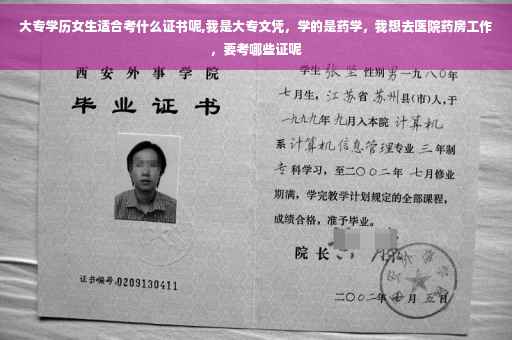 大专学历女生适合考什么证书呢,我是大专文凭，学的是药学，我想去医院药房工作
，要考哪些证呢
西安外事学院
毕业证书
证书编号:0209130411
学生 张 性别 男 一九八〇年
七月生，江苏省 苏州县(市)人,于
一九九九年 九月入本院 计算机
系 计算机信息管理专业 三年制
专科学习，至二〇〇二年 七月修业
期满，学完教学计划规定的全部课程，
成绩合格，准予毕业。
院长
二〇〇二年 月 五日